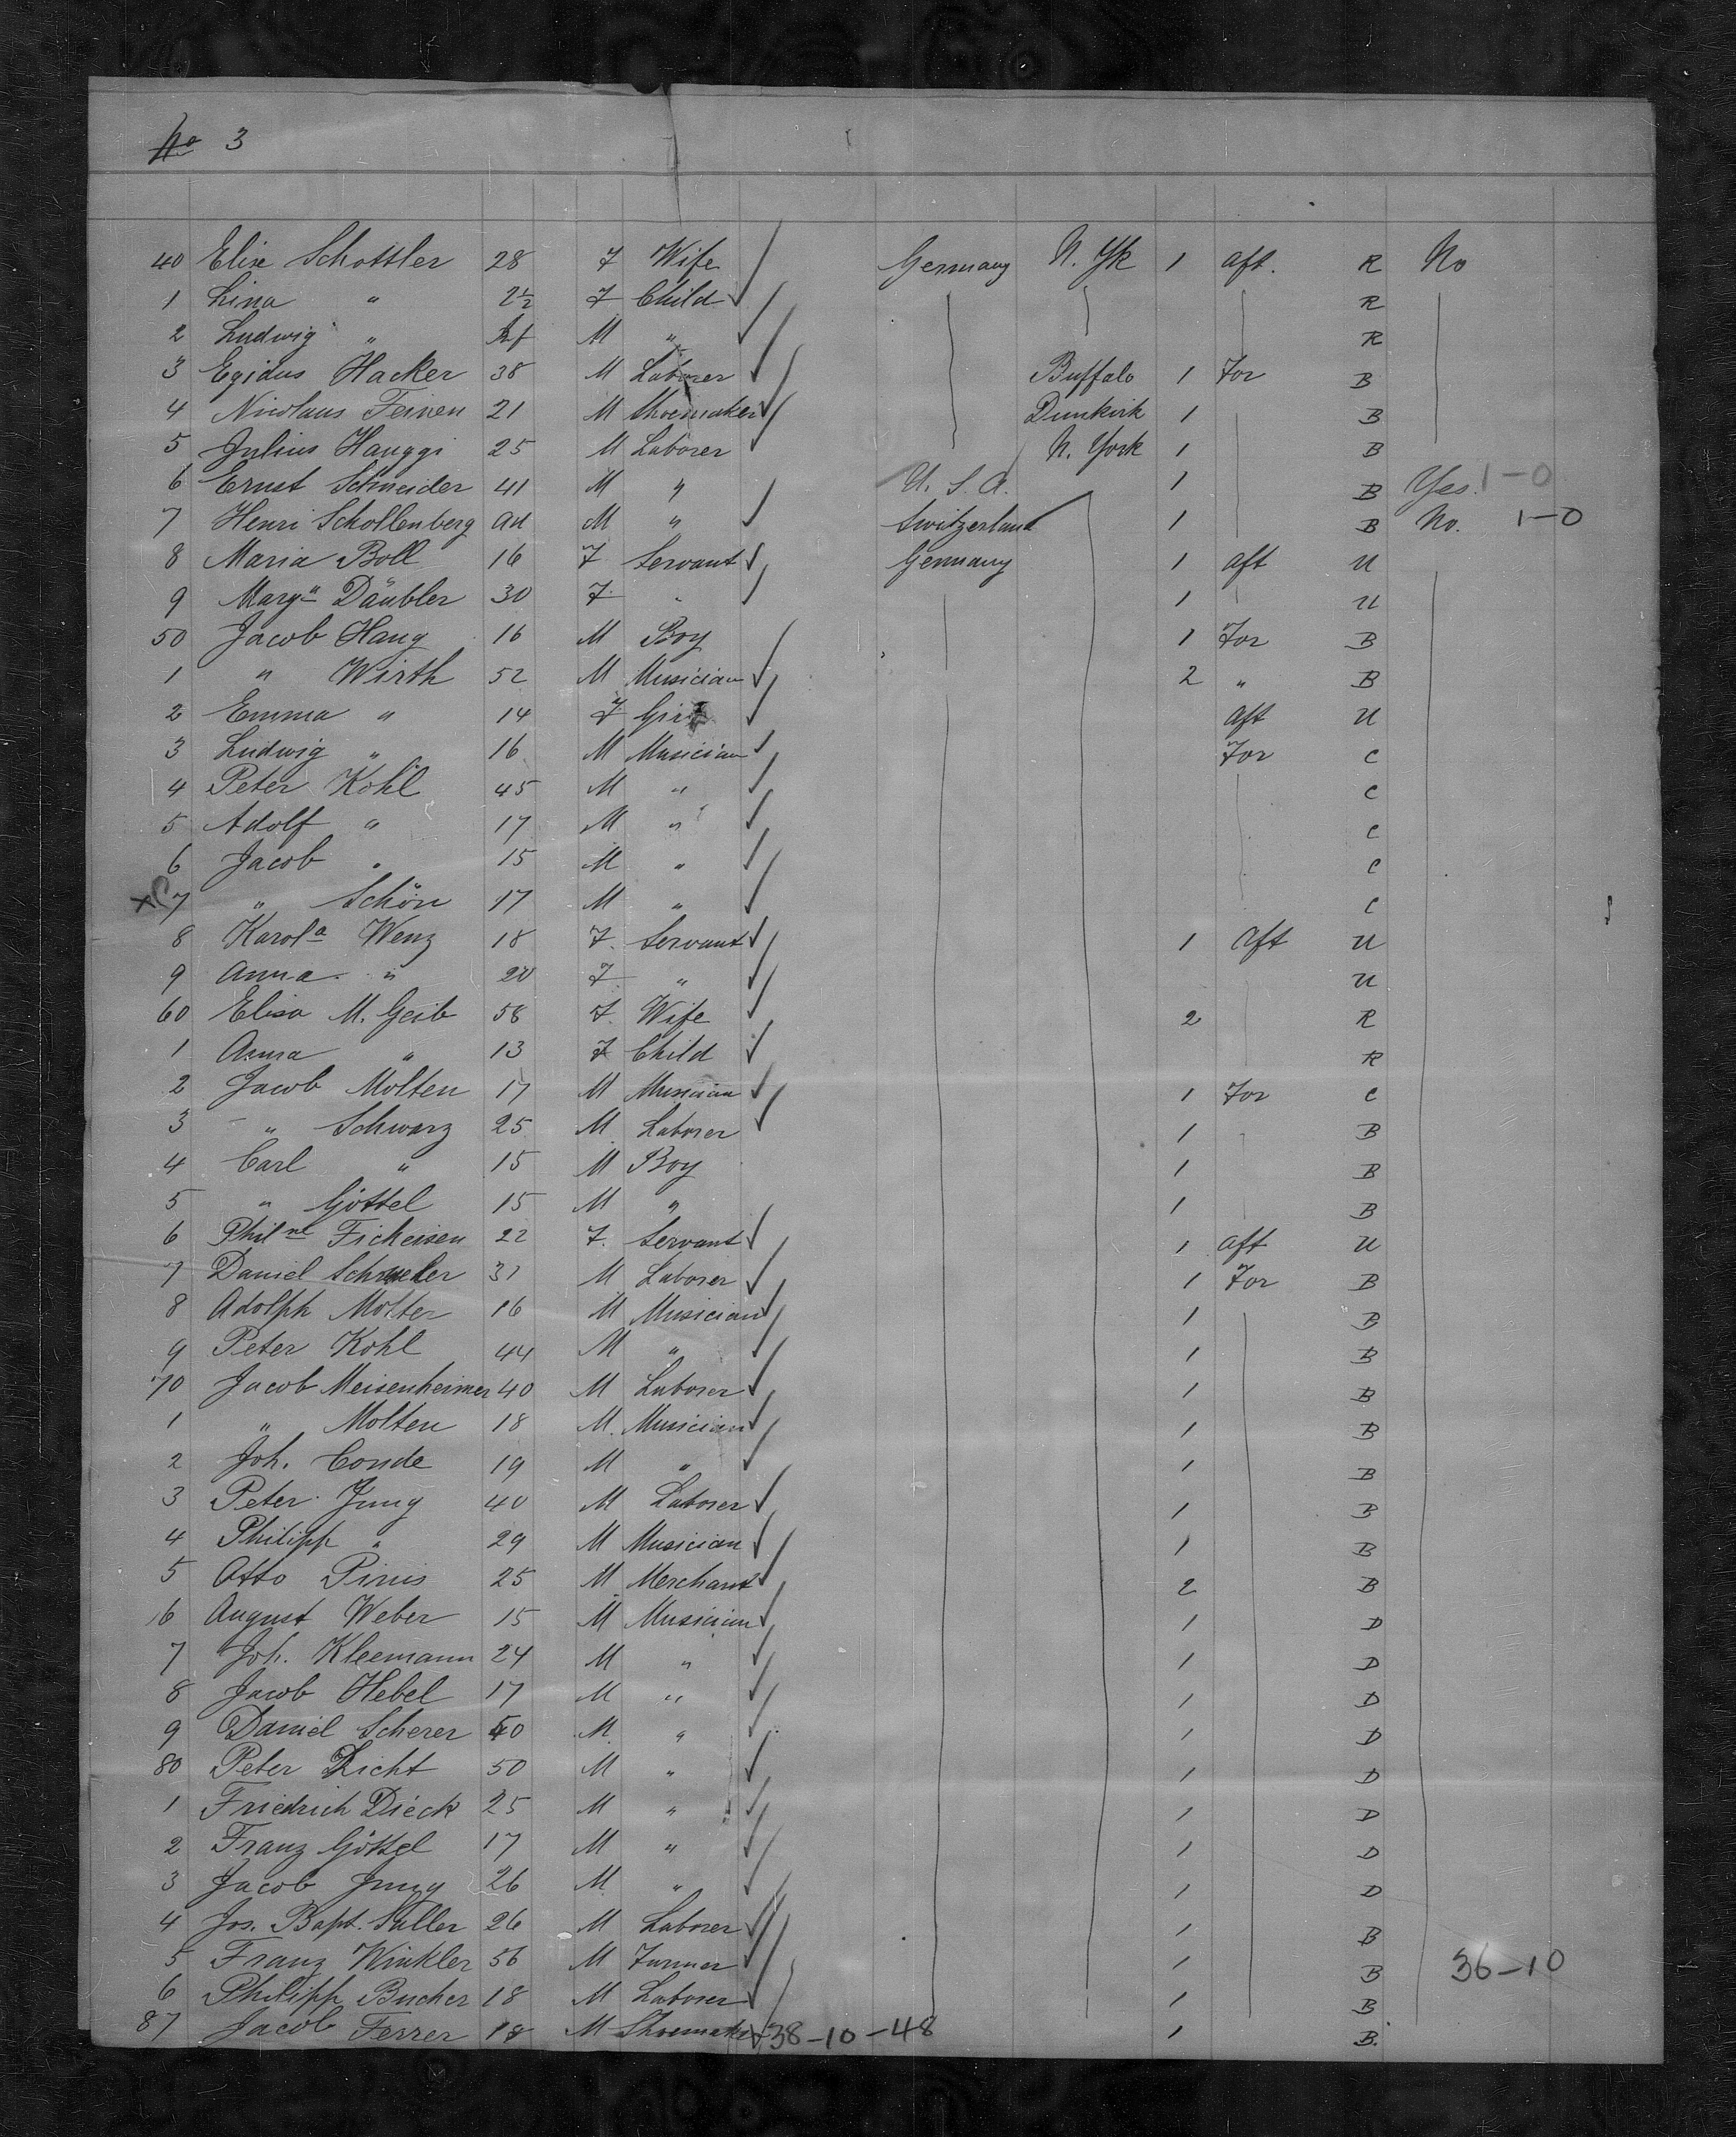 No 3
40 Elise Schottler 28 F Wife Germany N. Yk 1 Aft. R No
1 Lina " 2½ F Child R
2 Ludwig " M " R
3 Egidus Hacker 38 M Laborer Buffalo 1 For B
4 Nicolaus Feinen 21 M Shoemaker Dunkirk 1 B
5 Julius Hauggi 25 M Laborer N. York 1 B
6 Ernst Schneider 41 M " U. S. A. 1 B Yes. 1-0
7 Henri Schollenberg ad M " Switzerland 1 B No. 1-0
8 Maria Boll 16 F Servant Germany 1 Aft U
9 Marga Däubler 30 F " 1 U
50 Jacob Haug 16 M Boy 1 For B
1 " Wirth 52 M Musician 2 " B
2 Emma " 14 F Girl Aft U
3 Ludwig " 16 M Musician For C
4 Peter Kohl 45 M " C
5 Adolf " 17 M " C
6 Jacob " 15 M " C
7 " Schön 17 M " C
8 Karola Wenz 18 F. Servant 1 Aft U
9 Anna " 20 F " U
60 Elisa M. Geib 58 F. Wife 2 R
1 Anna " 13 F Child R
2 Jacob Molten 17 M Musician 1 For C
3 " Schwarz 25 M Laborer 1 B
4 Carl " 15 M Boy 1 B
5 " Göttel 15 M " 1 B
6 Philne Fickeisen 22 F. Servant 1 Aft U
7 Daniel 31 M Laborer 1 For B
8 Adolph Molter 16 M Musician 1 B
9 Peter Kohl 44 M " 1 B
70 Jacob Meisenheimer 40 M Laborer 1 B
1 " Molten 18 M. Musician 1 B
2 Joh. Conde 19 M " 1 B
3 Peter Jung 40 M Laborer 1 B
4 Philipp " 29 M Musician 1 B
5 Otto Pirris 25 M Merchant 2 B
6 August Weber 15 M Musician 1 D
7 Joh. Kleemann 24 M " 1 D
8 Jacob Hebel 17 M " 1 D
9 Daniel Scherer 40 M. " 1 D
80 Peter Licht 50 M " 1 D
1 Friedrich Dieck 25 M " 1 D
2 Franz Göttel 17 M " 1 D
3 Jacob Jung 26 M " 1 D
4 Jos. Bapt. Saller 26 M Laborer 1 B
5 Franz Winkler 56 M Turner 1 B 36-10
6 Philipp Bucher 18 M Laborer 1 B
87 Jacob Ferrer 18 M Shoemaker 38-10-48 1 B.